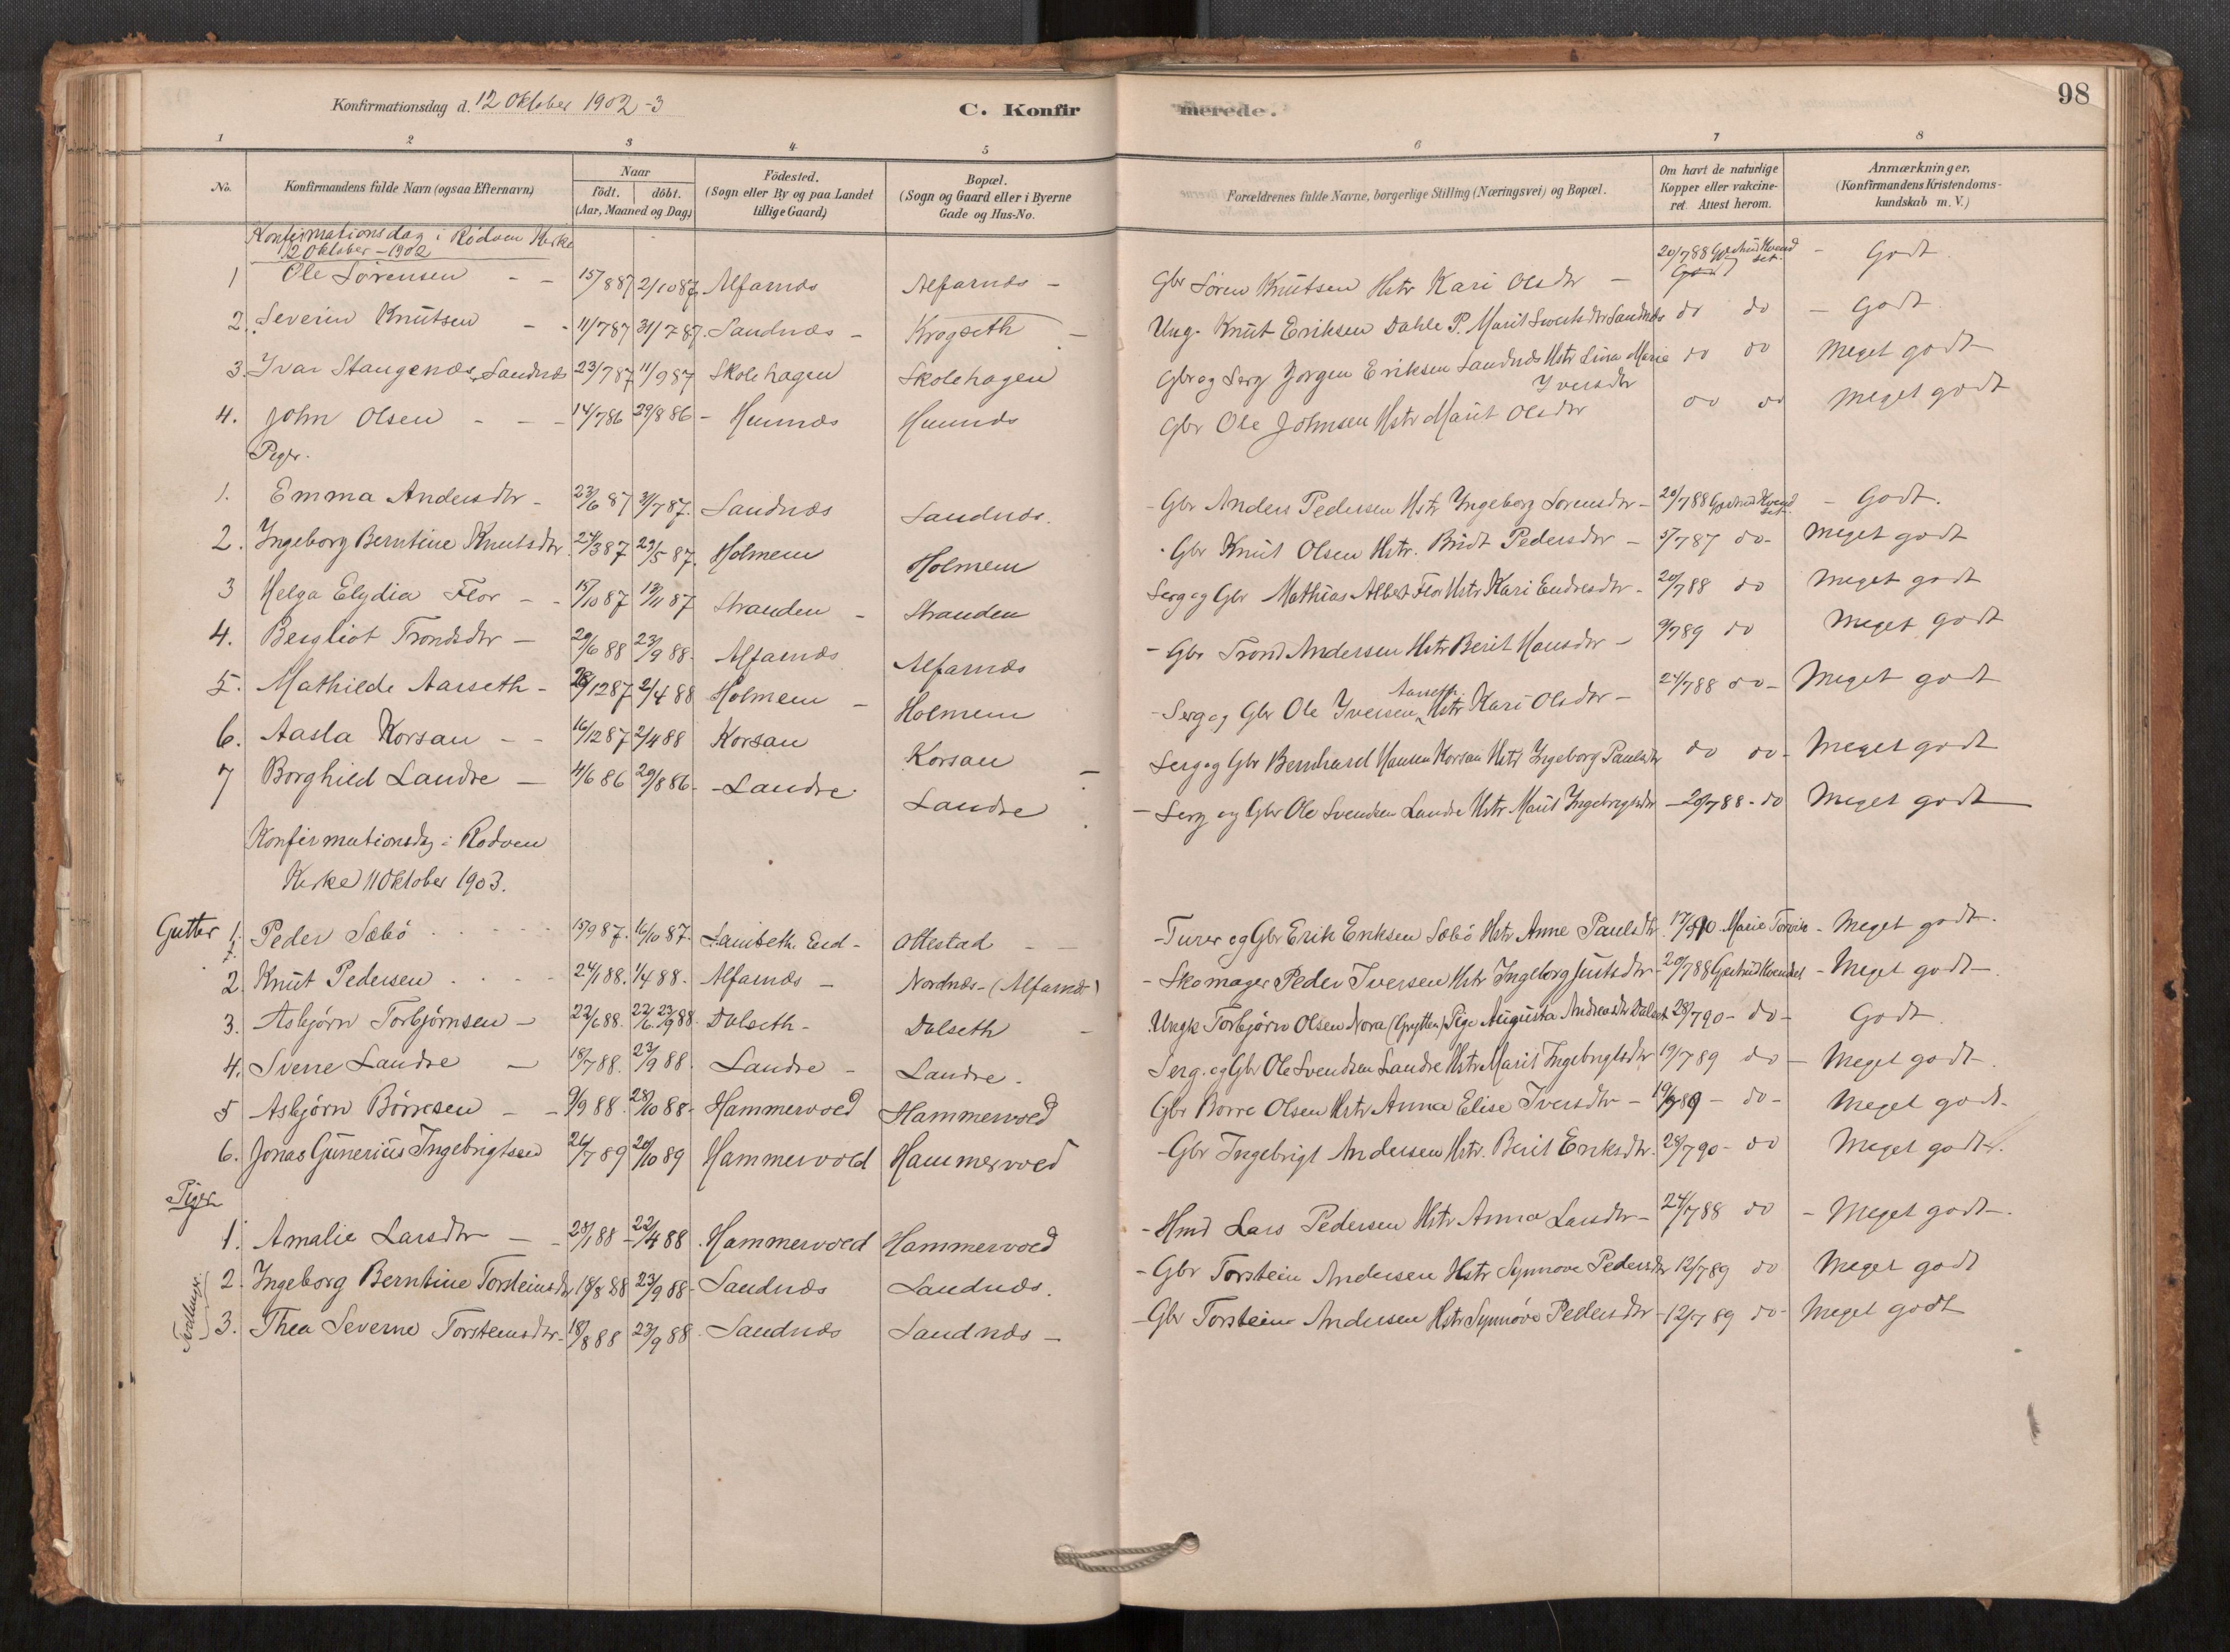 98
Konfirmationsdag d. 12 Oktober 1902-3 C. Konfirmerede.
1 2 3 4 5 6 7 8
No. Konfirmandens fulde Navn (ogsaa Efternavn) Naar födt. döbt. (Aar, Maaned og Dag) Födested. (Sogn eller By og paa Landet tillige Gaard) Bopæl. (Sogn og Gaard eller i Byerne Gade og Hus-No. Forældrenes fulde Navne, borgerlige Stilling (Næringsvei) og Bopæl. Om havt de naturlige Kopper eller vakcineret. Attest herom. Anmærkninger. (Konfirmandens Kristendomskundskab m. V.)
Konfirmationsdag i Rödven Kirke
12 Oktober - 1902
1 Ole Sörensen - - 15/8 87 2/10 87 Alfarnæs Alfarnæs - Gbr Sören Knutsen Hstr Kari Olsdtr - 20/7 88 Gjertrud Kvendset - Godt
2. Severin Knutsen - - 11/7 87 31/7 87. Sandnæs - Krogseth - Ung. Knut Eriksen Dahle P. Marit Sivertsdtr Sandnæs do do - Godt
3. Ivar Stangenæs Sandnæs 23/7 87 11/9 87 Skolehagen Skolehagen Gbr og Serg Jörgen Eriksen Sandnæs Hstr Lina Marie Iversdtr do do Meget godt
4. John Olsen - - - 14/7 86 29/8 86 - Hunnæs Hunnæs Gbr Ole Johnsen Hstr Marit Olsdtr do do Meget godt
Piger.
1. Emma Andersdtr - 23/6 87 31/7 87. Sandnæs Sandnæs. - Gbr Anders Pedersen Hstr Ingeborg Sörensdtr - 20/7 88 Gjertrud Kvendset - Godt.
2. Ingeborg Berntine Knutsdtr 24/3 87 29/5 87. Holmem Holmem Gbr Knut Olsen Hstr. Brit Pedersdtr - 5/7 87 do - Meget godt
3 Helga Elydia Flor - - 15/10 87 13/11 87 Stranden - Stranden Serg og Gbr Mathias Albert Flor Hstr Kari Endresdtr - 20/7 88 do Meget godt
4. Bergliot Trondsdtr - 29/6 88 23/9 88. Alfarnæs Alfarnæs - Gbr Trond Andersen Hstr Berit Hansdtr - 9/7 89 do Meget godt
5. Mathilde Aarseth - 28/12 87 2/4 88 Holmem - Holmem - Serg og Gbr Ole Iversen Aarseth Hstr Kari Olsdtr - 24/7 88 do - Meget godt
6. Aasla Korsan - - 16/12 87 2/4 88 Korsan Korsan - Serg og Gbr Bernhard Hansen Korsan Hstr Ingeborg Paulsdtr do do - Meget godt
7 Borghild Landre - 4/6 86 29/8 86 - Landre Landre - Serg og Gbr Ole Svendsen Landre Hstr Marit Ingebrigtsdtr - 20/7 88 - do Meget godt
Konfirmationsdag i Rödven
Kirke 11 Oktober 1903.
Gutter 1. Peder Sæbö 15/9 87. 16/10 87. Lanseth. Eid - Ottestad - - - Turer og Gbr Erik Eriksen Sæbö Hstr Anne Paulsdtr. 17/9 90 Marie Torvik - Meget godt.
2. Knut Pedersen 24/1 88. 1/4 88. Alfarnæs - Nordnæs - (Alfarnæs) - Skomager Peder Iversen Hstr Ingeborg Justsdtr - 20/7 88 Gjertrud Kvendset - Meget godt -
3. Asbjörn Torbjörnsen - 22/6 88. 22/6 23/9 88. Dalseth - Dalseth - Ungk Torbjörn Olsen Nora (Grytten) Pige Augusta Andreasdtr Dalset 28/7 90 - do - Godt.
4. Sverre Landre - 18/7 88. 23/9 88. Landre - Landre. Serg. og Gbr Ole Svendsen Landre Hstr Marit Ingebrigtsdtr 19/7 89 do - Meget godt
5 Asbjörn Börresen - - 9/9 88. 28/10 88 - Hammervold Hammervold Gbr Börre Olsen Hstr Anna Elise Iversdtr - 19/7 89 - do - Meget godt.
6. Jonas Gunerius Ingebrigtsen 26/7 89 20/10 89 Hammervold Hammervold - Gbr Ingebrigt Andersen Hstr. Berit Eriksdtr. 28/7 90 - do Meget godt.
Piger
1. Amalie Larsdtr - - 28/1 88 - 22/4 88 Hammervold Hammervold - Hmd Lars Pedersen Hstr Anna Larsdtr - 24/7 88 do - Meget godt -
Tvillinger. 2. Ingeborg Berntine Torsteinsdtr 18/8 88 23/9 88 - Sandnæs Sandnæs. - Gbr Torstein Andersen Hstr Synnöve Pedersdtr 12/7 89 do Meget godt
3. Thea Severine Torsteinsdtr - 18/8 88 23/9 88. Sandnæs Sandnæs - - Gbr Torstein Andersen Hstr Synnöve Pedersdtr - 12/7 89 do - Meget godt